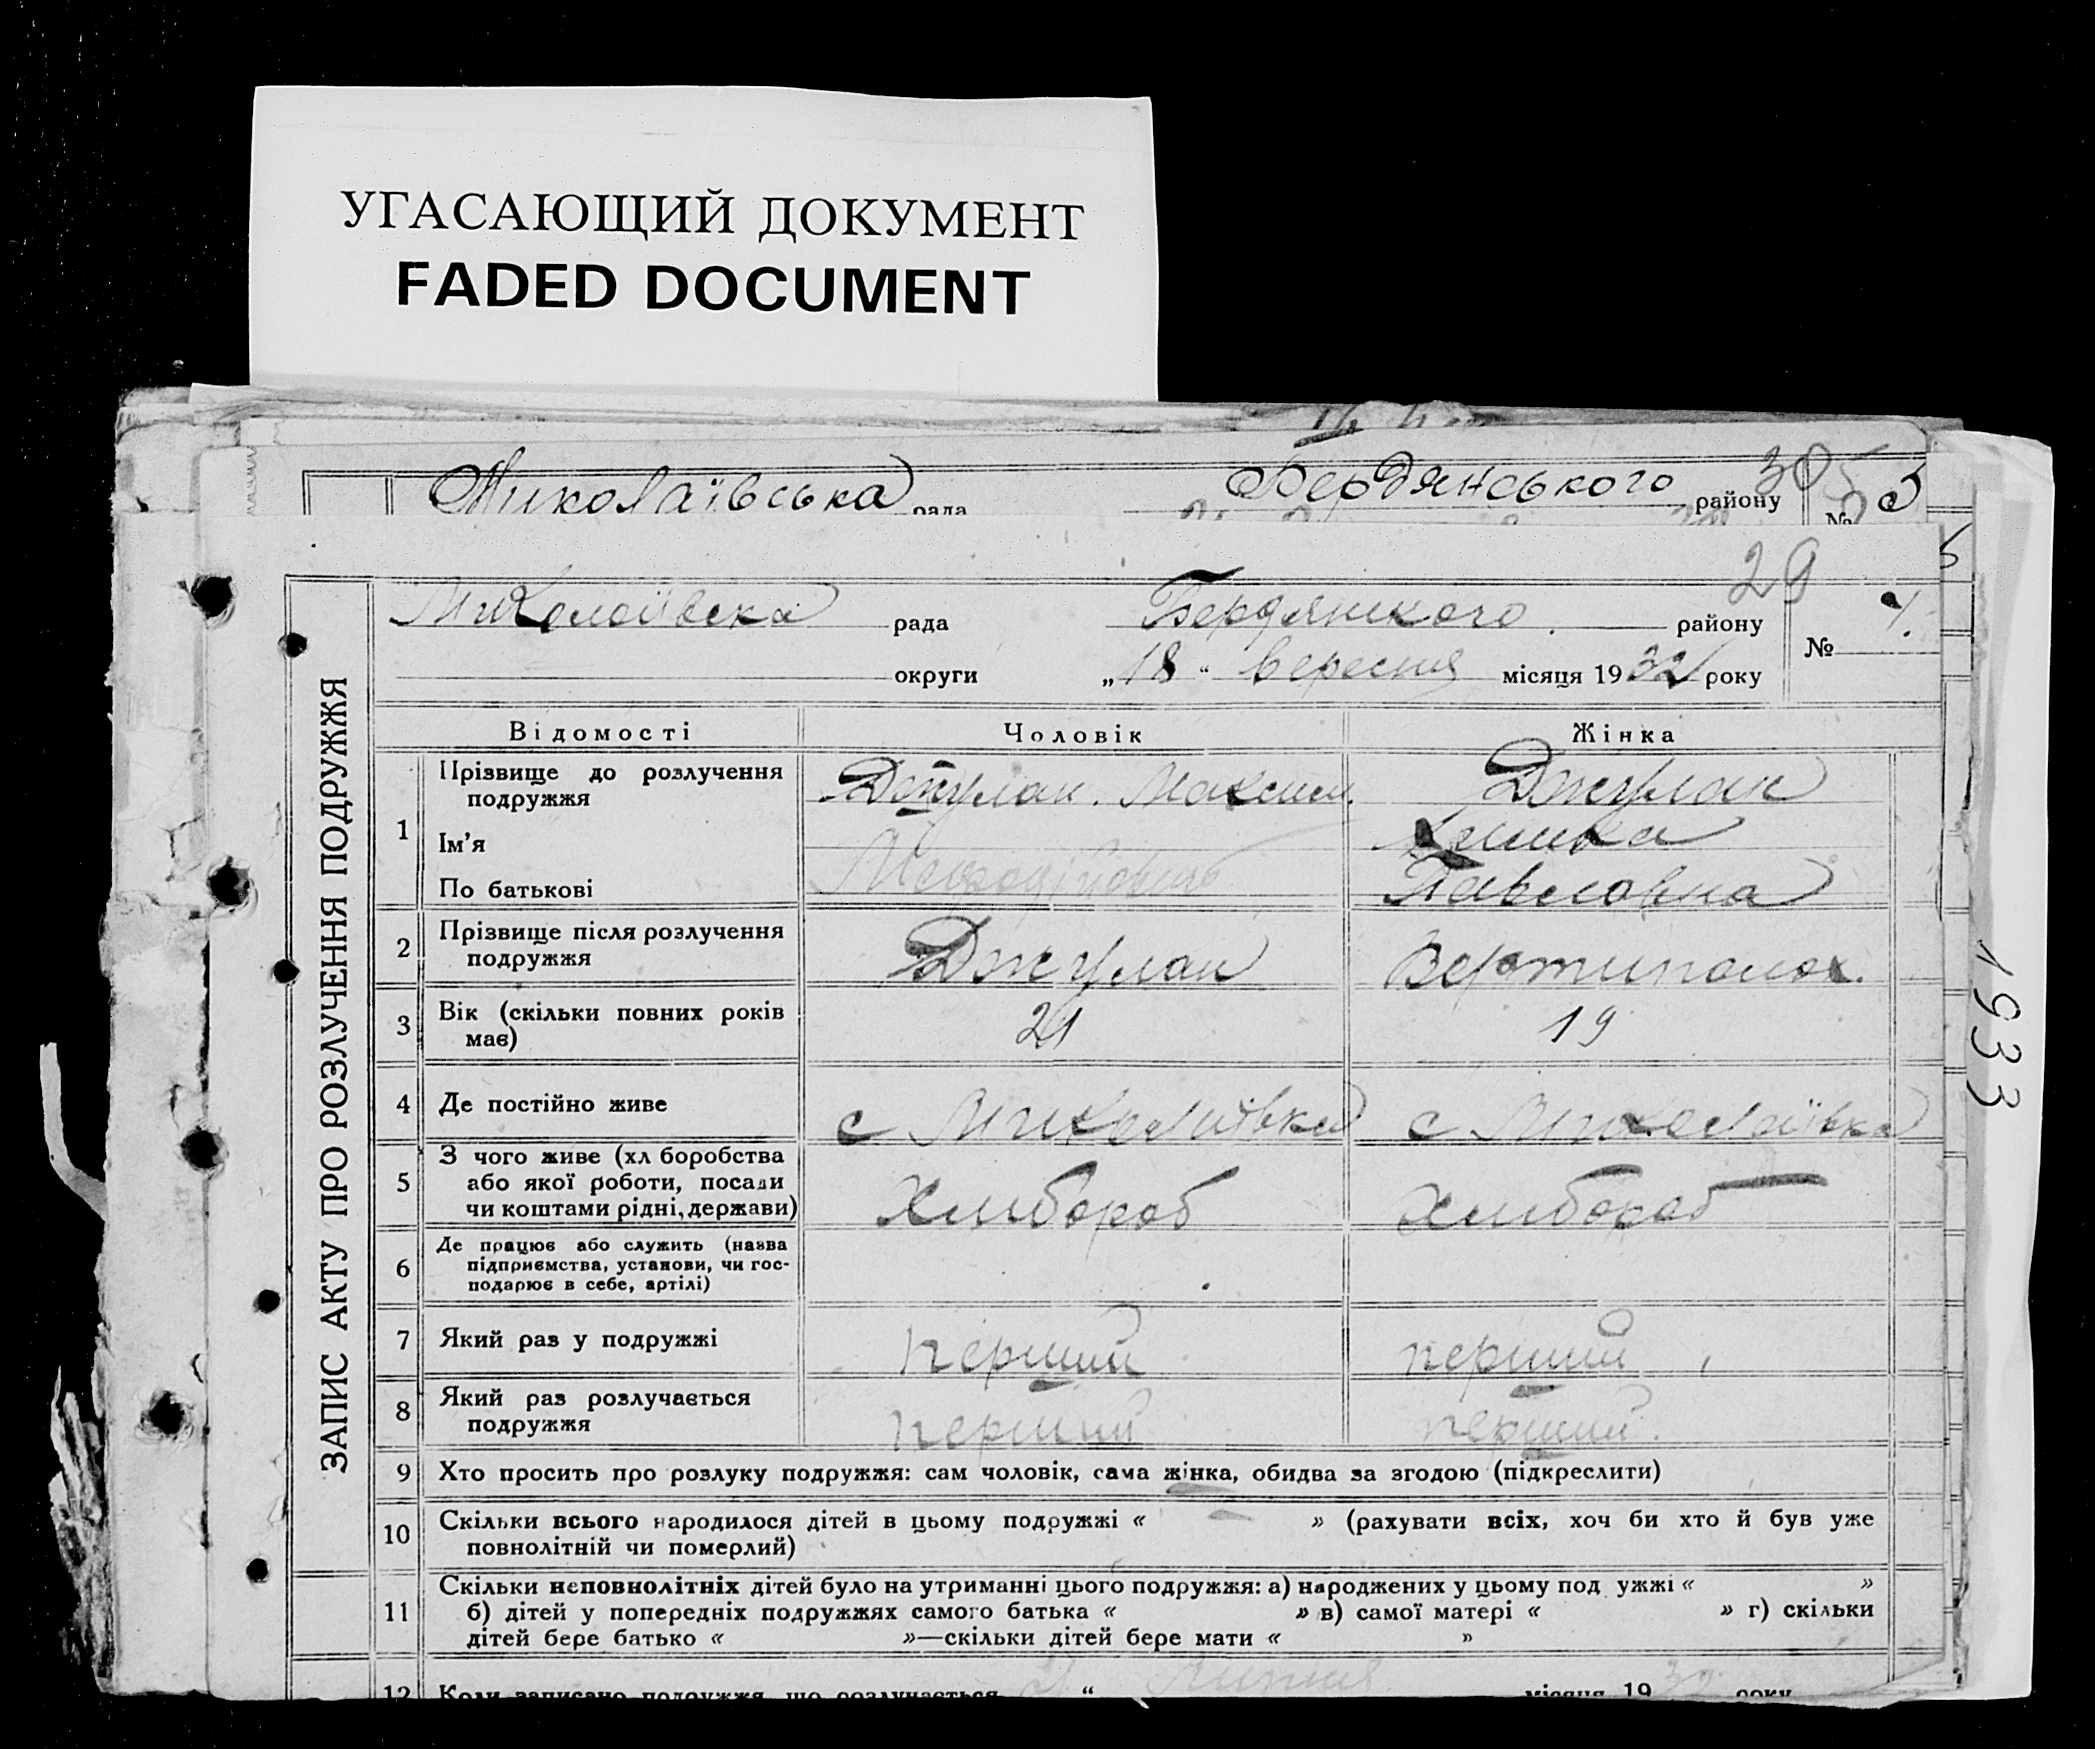 УГАСАЮЩИЙ ДОКУМЕНТ
FADED DOCUMENT
Миколаївська рада Бердянського району 305 №
29
Миколоївска рада Бердянского району № 4.
округи „18“ вересня місяця 1932 року
ЗАПИС АКТУ ПРО РОЗЛУЧЕННЯ ПОДРУЖЖЯ
Відомості Чоловік Жінка
1 Прізвище до розлучення Джулак. Максим. Джулак
подружжя
Ім'я
По батькові Мефодійович Павловна
2 Прізвище після розлучення Джулак
подружжя
3 Вік (скільки повних років 21 19
має)
4 Де постійно живе с Миколаївка с Миколаївка
5 З чого живе (хл боробства Хлибороб Хлибороб
або якої роботи, посади
чи коштами рідні, держави)
6 Де працює або служить (назва
підприємства, установи, чи гос-
подарює в себе, артілі)
7 Який раз у подружжі перший перший
8 Який раз розлучається перший перший.
подружжя
9 Хто просить про розлуку подружжя: сам чоловік, сама жінка, обидва за згодою (підкреслити)
10 Скільки всього народилося дітей в цьому подружжі « – » (рахувати всіх, хоч би хто й був уже
повнолітній чи померлий)
11 Скільки неповнолітніх дітей було на утриманні цього подружжя: а) народжених у цьому под ужжі « »
б) дітей у попередніх подружжях самого батька « » в) самої матері « » г) скільки
дітей бере батько « »—скільки дітей бере мати « »
12 Коли записано подружжя, що розлучається “ місяця 1932 року
1933